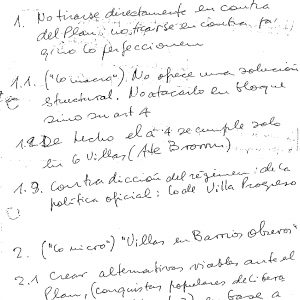 1. No tirarse directamente en contra
del Plan; no tirarse en contra pa
q' no lo perfeccionen
1.1. ("lo macro"). No ofrece una solución
structural. No atacarlo en bloque
sino su art 4
1.2 De hecho el a 4 se cumple solo
en 6 Villas (Alte Brown)
1.3. Contradicción del régimen: de la
política oficial: lo de Villa Progreso
2. ("lo micro") "Villas en Barrios Obreros"
2.1 Crear alternativas viables ante al
Plan, (conquistas populares de libera
base a